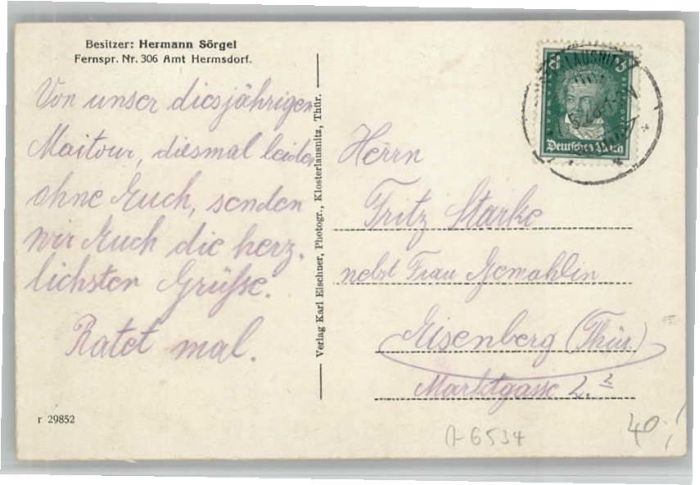 Besitzer: Hermann Sörgel
Fernspr. Nr. 306 Amt Hermsdorf.
Von unser diesjährigen
Maitour, diesmal leider
ohne Euch, senden
wir Euch die herz-
lichsten Grüße.
Ratet mal.
r 29852
Verlag Karl Elschner, Photogr., Klosterlausnitz, Thür.
8 8
Deutsches Reich
LAUSNITZ
Herrn
Fritz Starke
nebst Frau Gemahlin
Eisenberg (Thür)
Marktgasse 2.
A-6534
40,-